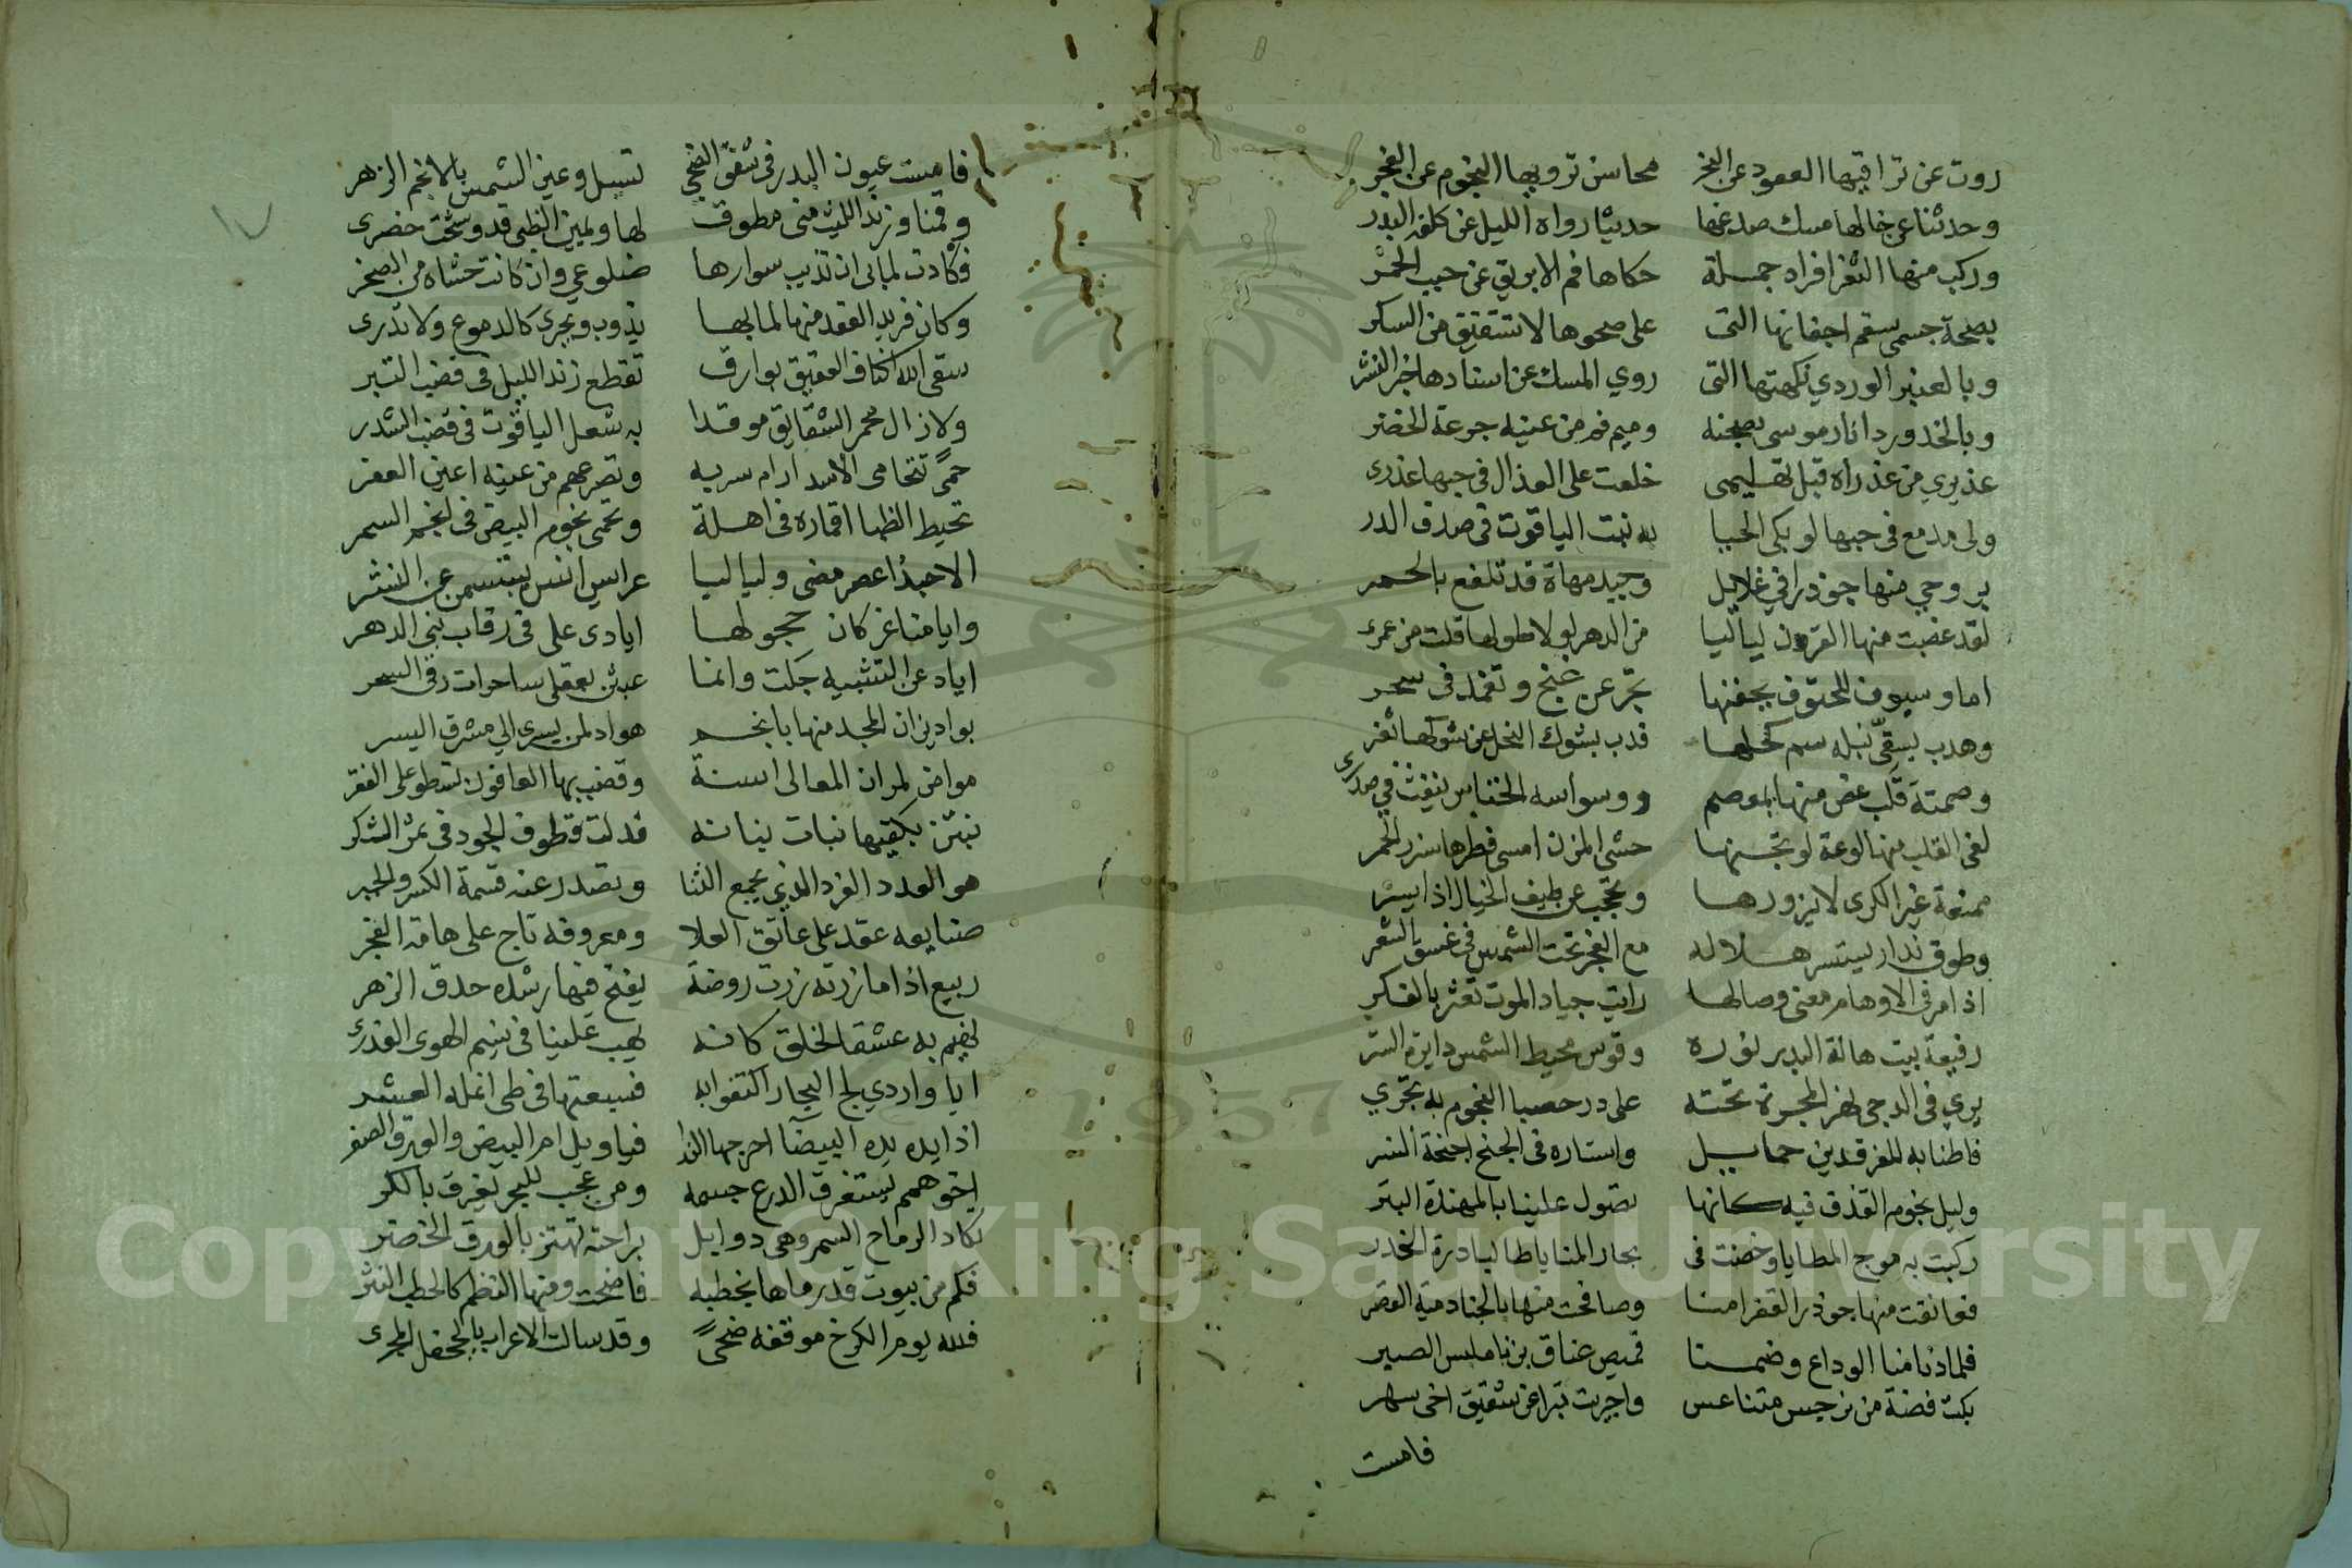 روت عن تراقيها العقود عن النحر محاسن ترويها النجوم عن الفجر
وحدثنا عن خالها مسك صدغها حديثا رواه الليل عن كلف البدر
وركب منها الثغر افراد جملة حكاها فم الابريق عن حبب الخمر
بصحة جسمي سقم اجفانها التى على صحوها لا تستفيق من السكر
وبالعنبر الوردي نكهتها التى روي المسك عن اسنادها خبر النشر
وبالخد وردا نار موسى بصحنه وميم فم من عينه جرعة الخضر
عذيري من عذراه قبل تمايمى خلعت على العذال في حبها عذرى
ولى مدمع فى حبها لو بكى الحيا به نبت الياقوت فى صدف الدر
بروحي منها جوذرا في غلايل وجيد مهاة قد تلفع بالخمر
لقد غصبت منها القرون لياليا من الدهر لولا طولها قلت من عمرى
اما وسيوف للحتوف بجفنها تجرّ عن غنج وتغمد فى سحر
وهدب يسقّى نبله سم كحلها فذب بشوك النحل عن شوكها ثغر
وصمتة قلب غص منها بمعصم ووسواسه الخناس ينفث في صدرى
لفى القلب منها لوعة لو تجنها حشى المزن امسى قطرها شرر الجمر
ممنعة غير الكرى لا يزورها وتحجب عن طيف الخيال اذا يسر
وطوق نضار يستسر هلاله مع الفجر تحت الشمس فى غسق الشعر
اذا مر فى الاوهام معنى وصالها رايت جياد الموت تعثر بالفكر
رفيعة بيت هالة البدر نوره وقوس محيط الشمس دايرة الستر
يرى فى الدجى نهر المجرة تحته على در حصبا النجوم به تجري
فاطنابه للفرقدين حمايل واستاره فى الجنح اجنحة النسر
وليل نجوم القذف فيه كانها تصول علينا بالمهندة البتر
ركبت به موج المطايا وخضت فى بحار المنايا طالبا درة الخدر
فعانقت منها جوذر القفر امنا وصافحت منها بالخبا دمية القصر
فلما دنا منا الوداع وضمنا قميص عناق بزنا ملبس الصبر
بكت فضة من نرجس متناعس واجريت تبرا عن شقيق اخى سهر
فامست
فامست عيون البدر فى شفق الضحى تسيل وعين الشمس بالانجم الزهر
وقمنا وزند الليث منى مطوق لها ويمين الظبى قد وشحت خضرى
فكادت لما بى ان تذيب سوارها ضلوعي وان كانت حشاه من الصخر
وكان فريد العقد منها لما بها يذوب ويجرى كالدموع ولا تدرى
سقى الله اكناف العقيق بوارق تقطع زند الليل فى قضب التبر
ولا زال محمر الشقايق موقدا به شعل الياقوت فى قضب الشذر
حمىً تتحامى الاسد ارام سربه وتصرعهم من عينه اعين العفر
تحيط الظبا اقماره فى اهلة وتحمى نجوم البيض فى انجم السمر
الا حبذا عصر مضى ولياليا عرايس انس يبتسمن عن الثغر
وايامنا غر كان حجولها ايادى على فى رقاب بنى الدهر
اياد عن التشبيه جلت وانما عبثن بعقلى ساحرات رقى السحر
بواد يزان المجد منها بانجم هواد لمن يسرى الي مشرق اليسر
مواض لمران المعالى اسنة وقضب بها العافون تسطو على الفقر
نبتن بكفيها نبات بنانه فدلت قطوف الجود فى ثمر الشكر
هو العدد الفرد الذي يجمع الثنا ويصدر عنه قسمة الكسر والجبر
صنايعه عقد على عاتق العلا ومعروفه تاج على هامة الفخر
ربيع اذا ما زرته زرت روضة يفتح فيها رشده حدق الزهر
نهيم به عشقا لخلق كانه يهب علينا فى نسيم الهوى العذرى
ايا واردي لج البحار اكتفوا به فسبعتها فى طى انمله العشر
اذا يده يده البيضا اخرجها الندا فيا ويل ام البيض والورق الصفر
اخو همم يستغرق الدرع جسمه ومن عجب للبحر يغرق بالكر
تكاد الرماح السمر وهى ذوابل براحته تهتز بالورق الخضر
فكم من بيوت قد رماها بخطبه فاضحت ومنها النظم كالخطب النثر
فلله يوم الكرخ موقفه ضحىً وقد سالت الاعراب بالجحفل المجرى
Copyright © King Saud University
1957